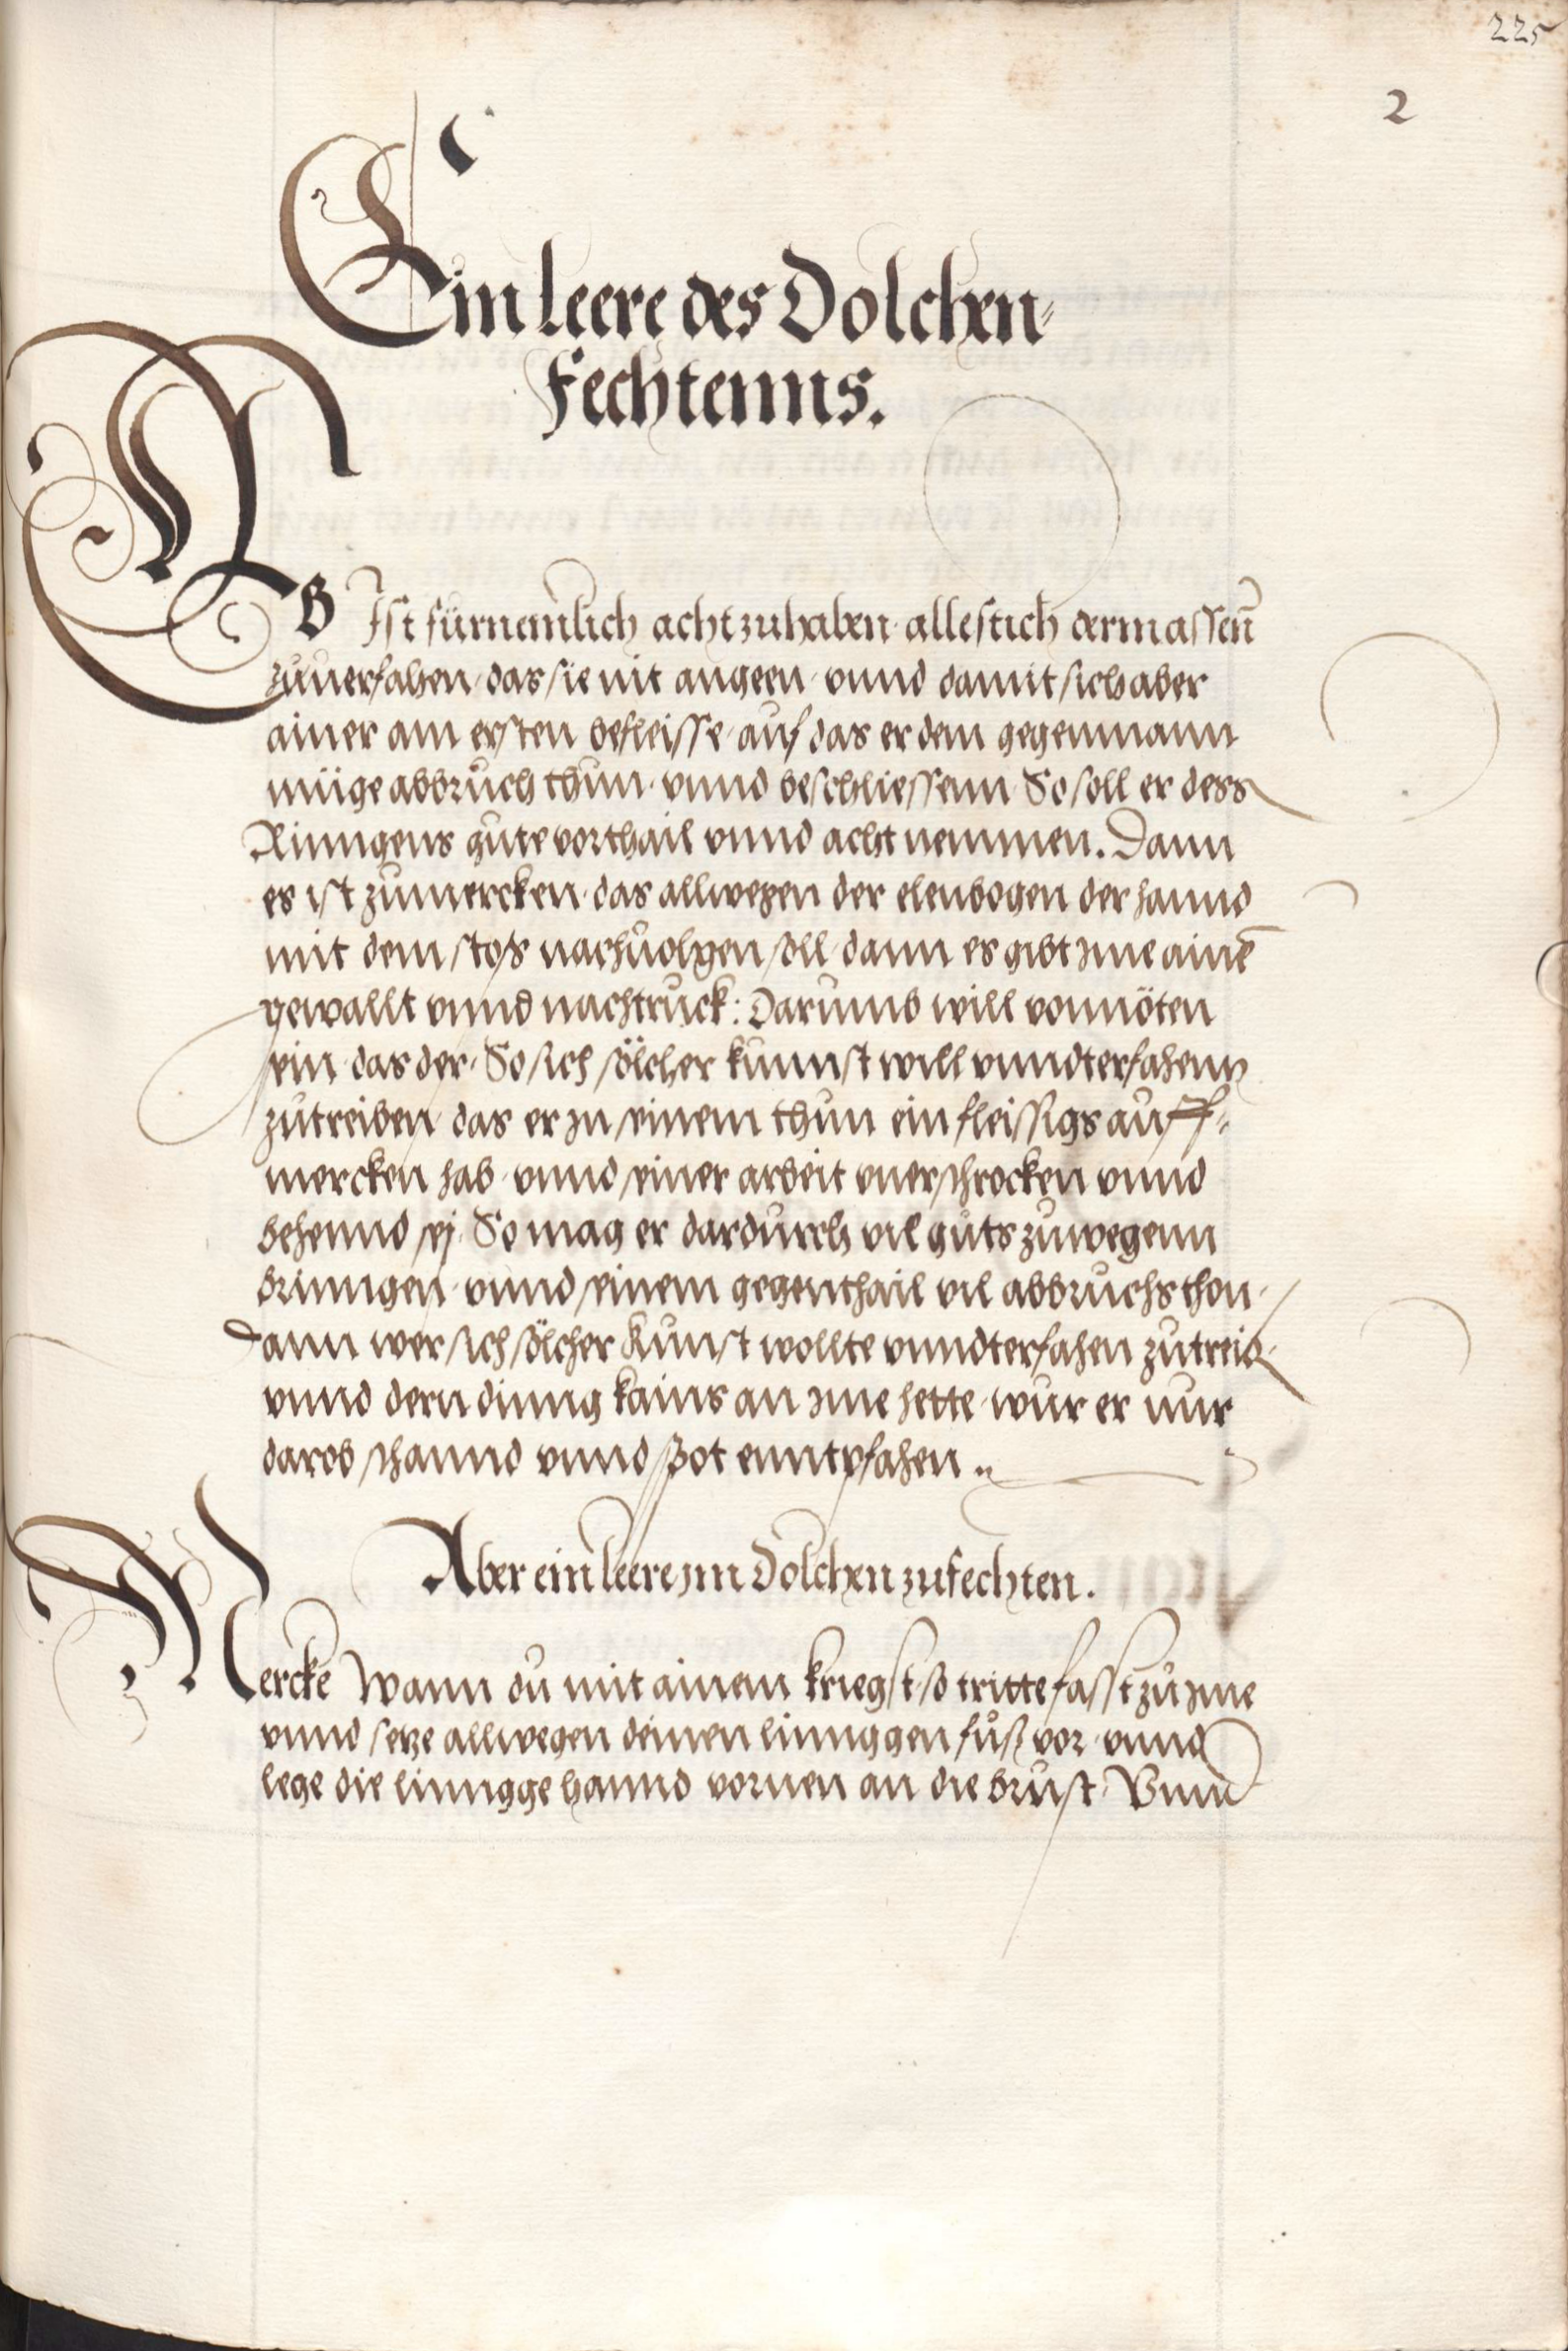 225
2
Ein leere des Dolchen-
Fechtenns.
ES Ist fürnemlich acht zuhaben alle stich dermassen̄
zuuerfahen, das sie nit angeen, vnnd damit sich aber
ainer am ersten befleisse, auf das er dem gegenmann
müge abbruch thun, vnnd beschliessenn, So soll er dess
Rinngens gute vorthail vnnd acht nemmen. Dann
es ist zumercken, das allwegen der elenbogen der hannd
mit dem stoß nachuolgen soll, dann es gibt jme ainē
gewallt vnnd nachtruck: Darumb will vonnöten
sein, das der, So sich sölcher kunnst will vnndterfahenn
zutreiben, das er jn seinem thun ein fleissigs auff-
mercken hab, vnnd seiner arbeit vnerschrocken vnnd
behennd sej, So mag er dardurch vil guts zuwegenn
bringen, vnnd seinem gegenthail vil abbruchs thon,
Dann wer sich sölcher Kunst wollte vnndterfahen zutreib.
vnnd dern dinng kains an jme hette, wur er nur
darob schannd vnnd spot enntpfahen.
Aber ein leere jm Dolchen zufechten.
Mercke Wann du mit ainem kriegst, so tritte fasst zu jme
vnnd setze allwegen deinen linnggen fůß vor, vnnd
lege die linngge hannd vornen an die brust, Vnnd